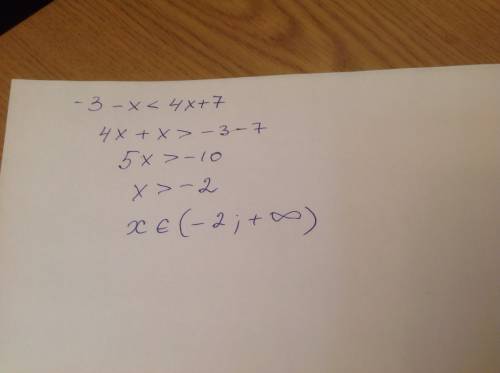 -3-x<4x+7
4x+x>-3-7
5x>-10
x>-2
x∈(-2;+∞)